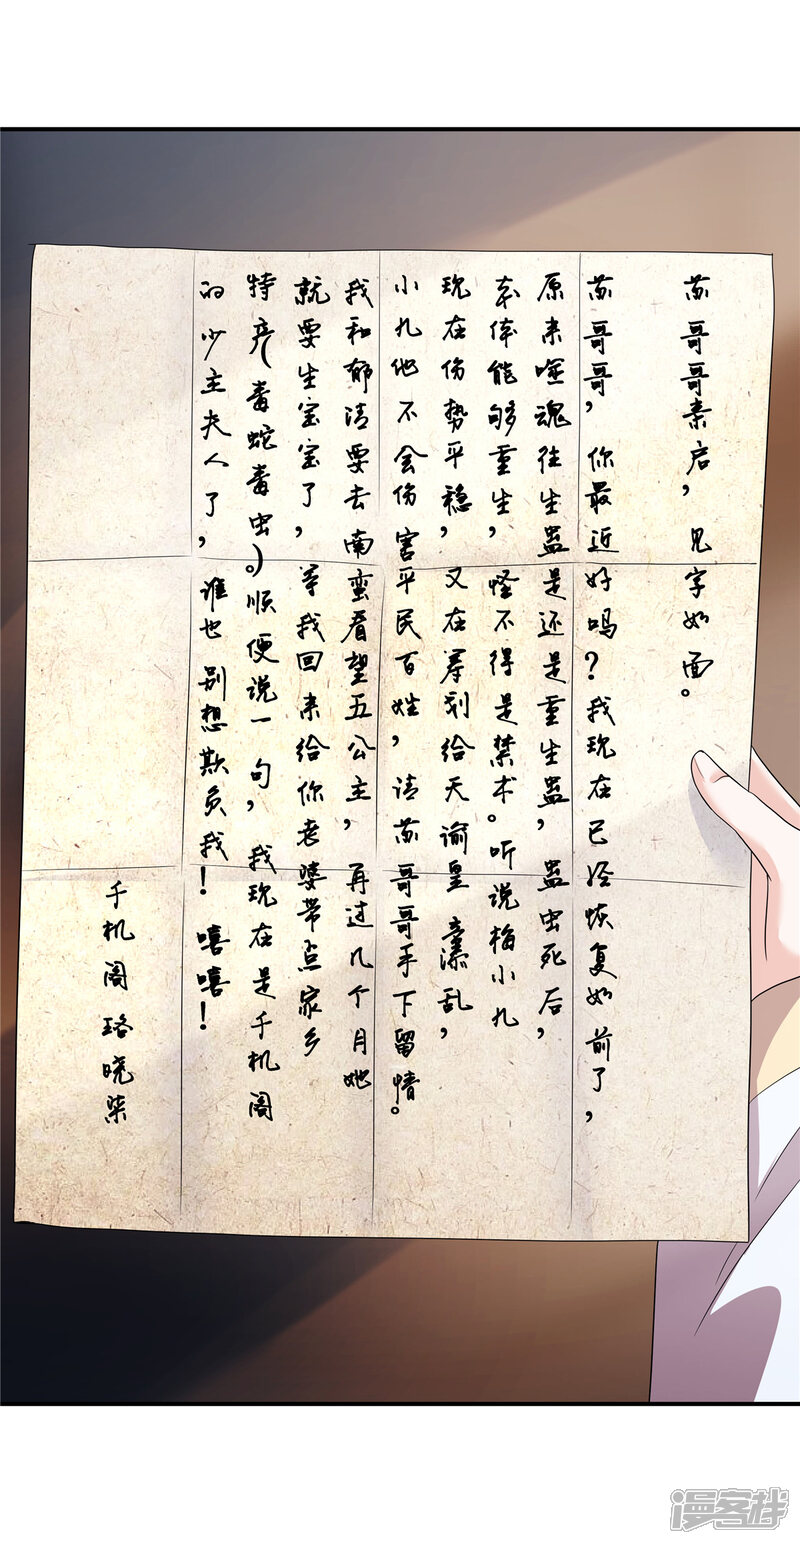 苏哥哥亲启，见字如面。
苏哥哥，你最近好吗？我现在已经恢复如前了，
原来噬魂往生蛊是还是重生蛊，蛊虫死后，
本体能够重生，怪不得是禁术。听说梅小九
现在伤势平稳，又在筹划给天谕皇室添乱，
小九他不会伤害平民百姓，请苏哥哥手下留情。
我和郁清要去南蛮看望五公主，再过几个月她
就要生宝宝了，等我回来给你老婆带点家乡
特产（毒蛇毒虫。）顺便说一句，我现在是千机阁
的少主夫人了，谁也别想欺负我！嘻嘻！
千机阁 珞晓柒
漫客栈